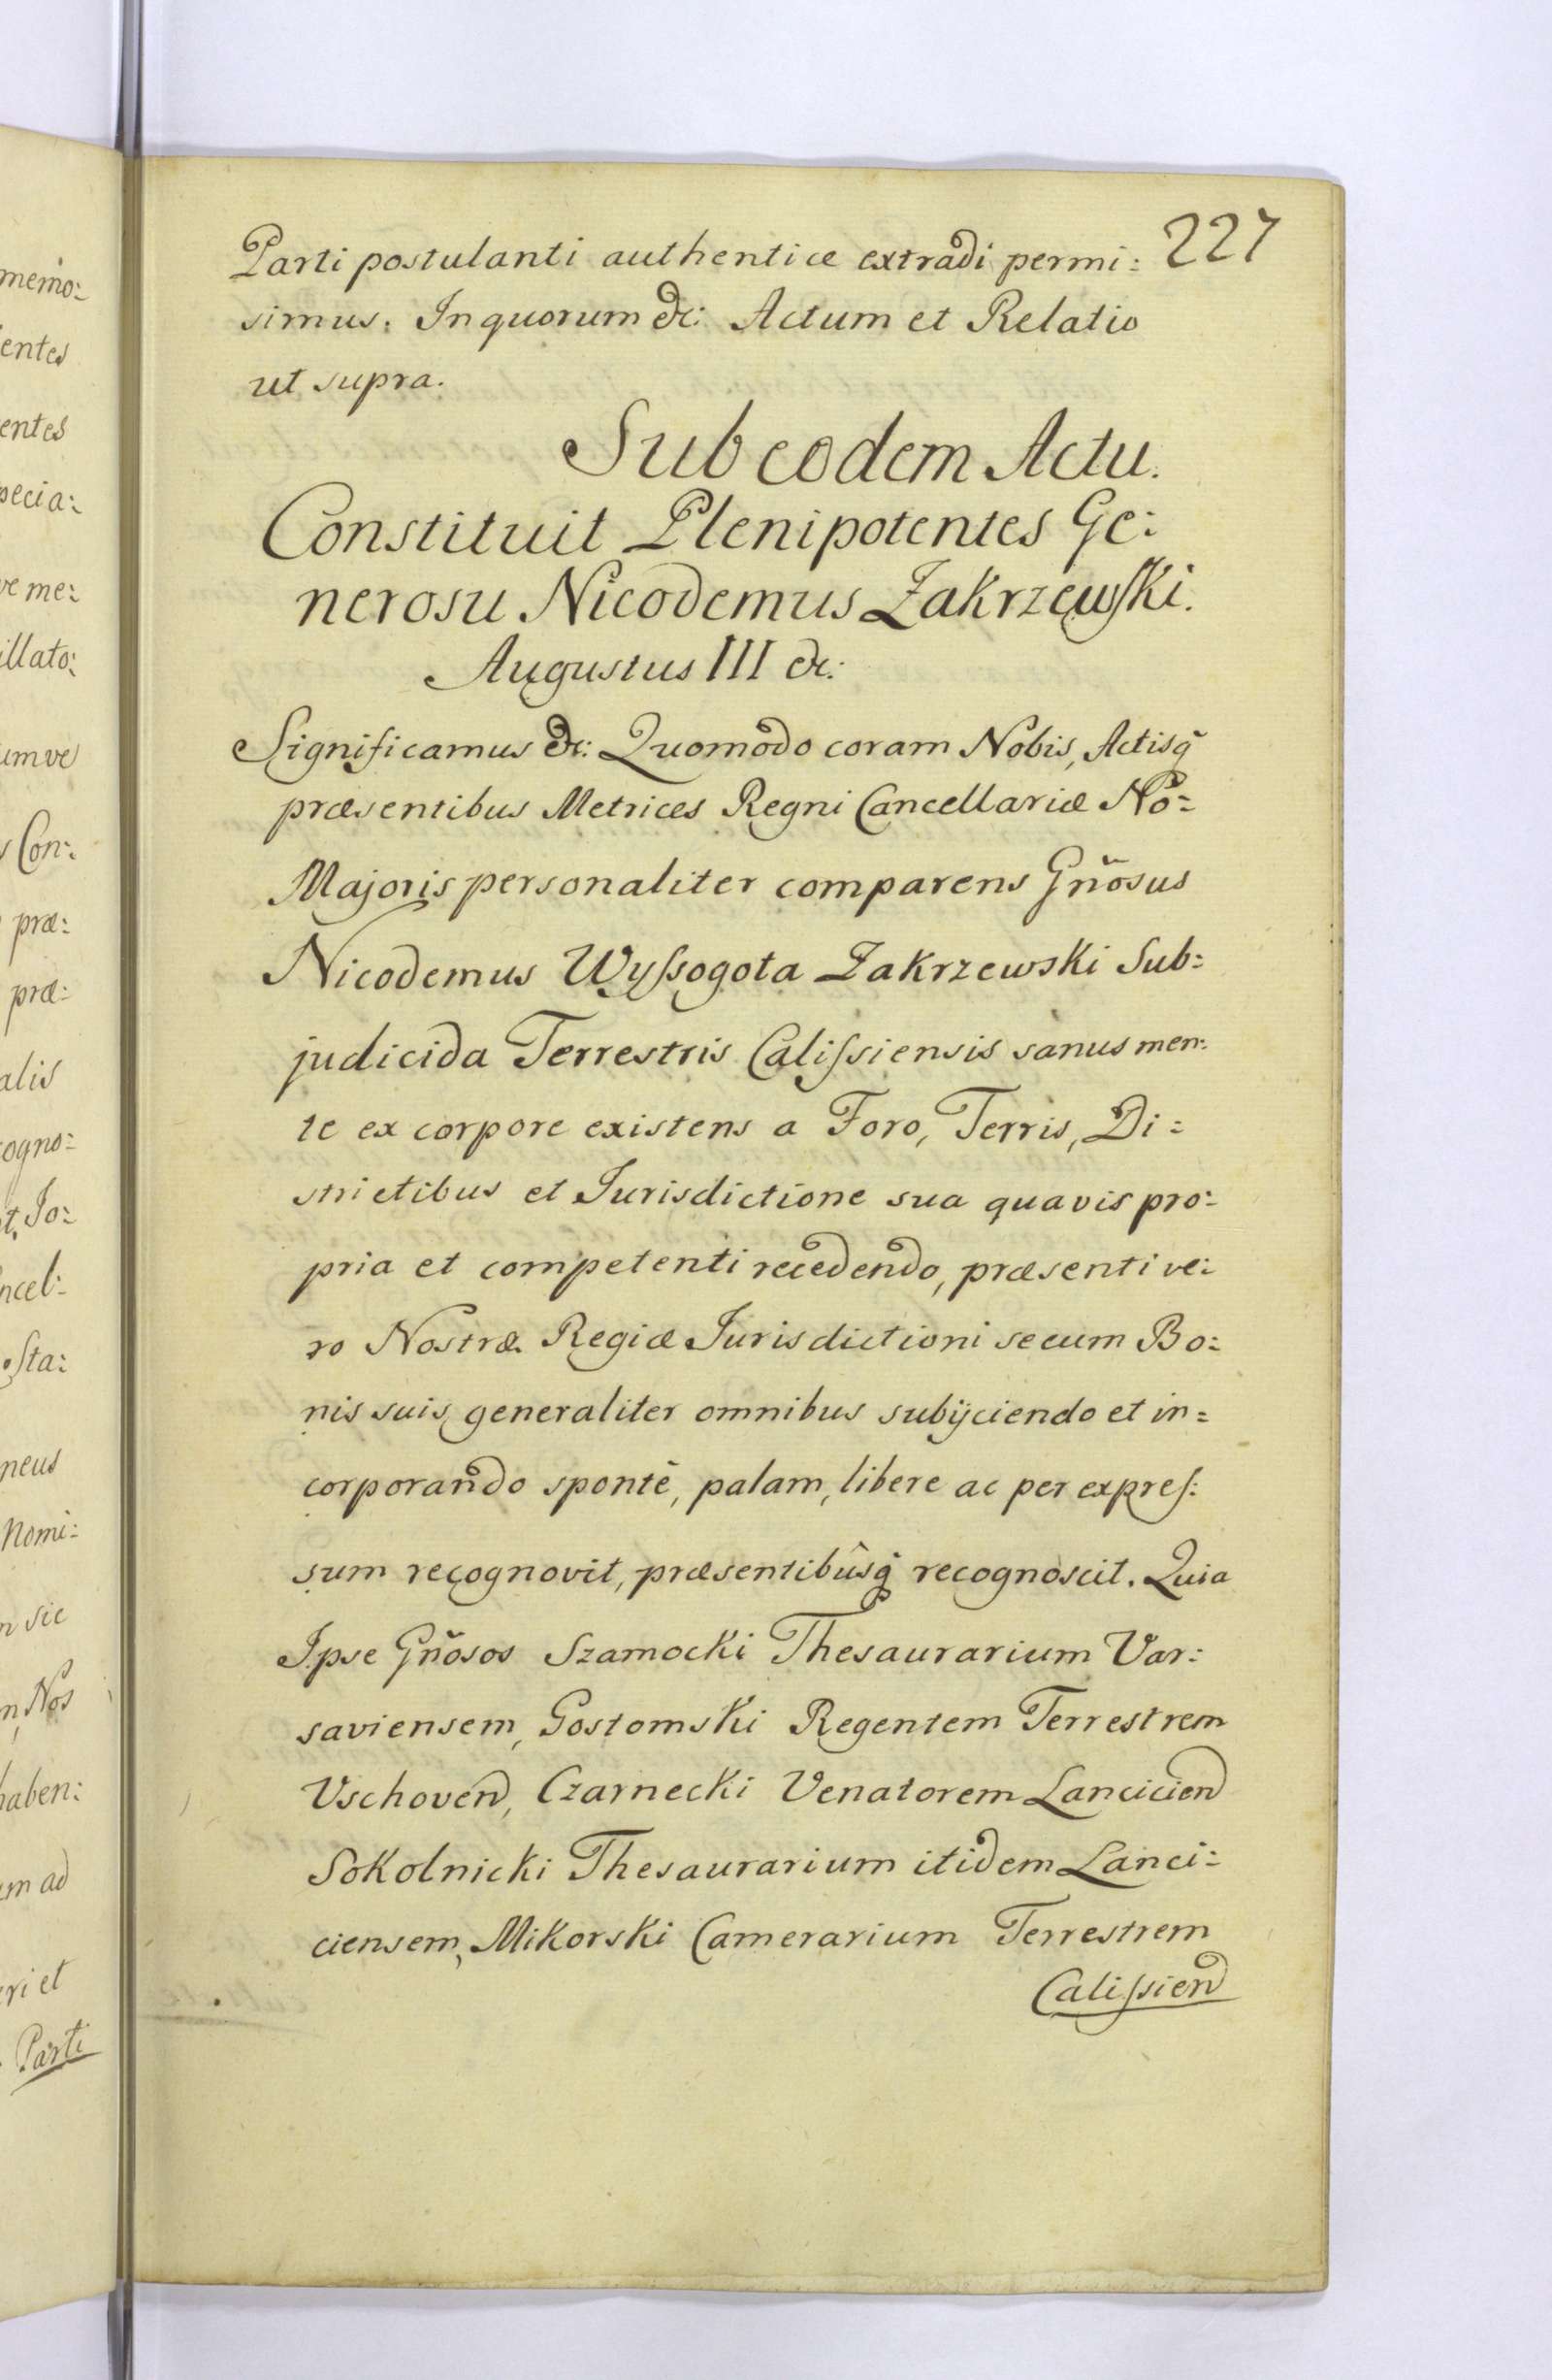 memo:
entes
entes
pecia:
ve me:
illato:
umve
s Con:
præ:
præ:
alis
cogno:
t, Jo:
ncel:
sta:
neus
Nomi:
n sic
n, Nos
haben:
um ad
eri et
Parti
227
Parti postulanti authentice extradi permi:
simus. In quorum &c: Actum et Relatio
ut supra.
Sub eodem Actu.
Constituit Plenipotentes Ge:
nerosu Nicodemus Zakrzewski.
Augustus III &c:
Significamus &c: Quomodo coram Nobis, Actisq̃
præsentibus Metrices Regni Cancellariæ No:
Majoris personaliter comparens Gñosus
Nicodemus Wyſsogota Zakrzewski Sub:
judicida Terrestris Caliſsiensis sanus men:
te ex corpore existens a Foro, Terris, Di:
strictibus et Jurisdictione sua quavis pro:
pria et competenti recedendo, præsenti ve:
ro Nostræ Regiæ Jurisdictioni secum Bo:
nis suis generaliter omnibus subijciendo et in:
corporando spontè, palam, libere ac per expreſ:
sum recognovit, præsentibûsq̃ recognoscit. Quia
Ipse Gñosos Szamocki Thesaurarium Var:
saviensem, Gostomski Regentem Terrestrem
Vschoven, Czarnecki Venatorem Lancicien
Sokolnicki Thesaurarium itidem Lanci:
ciensem, Mikorski Camerarium Terrestrem
Caliſsien